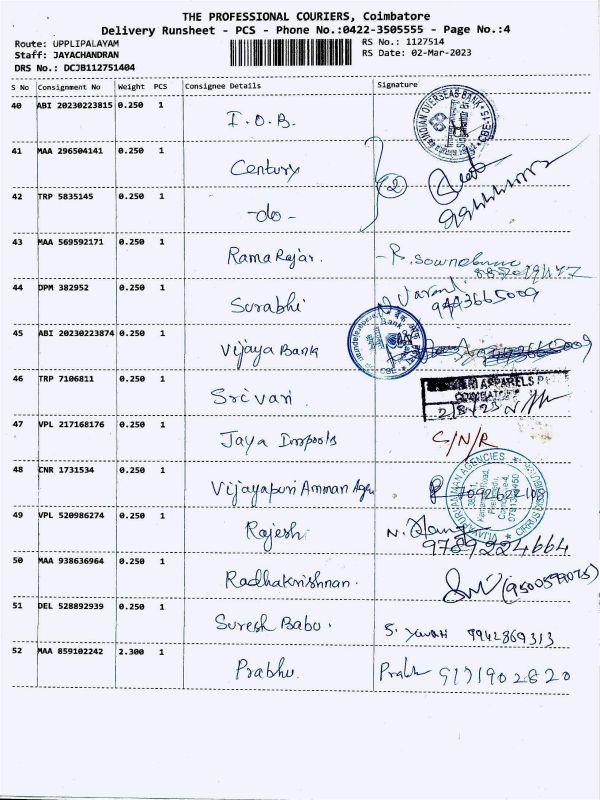 THE PROFESSIONAL COURIERS, Coimbatore
Delivery Runsheet - PCS - Phone No.:0422-3505555 - Page No.:4
Route: UPPLIPALAYAM RS No.: 1127514
Staff: JAYACHANDRAN RS Date: 02-Mar-2023
DRS No.: DCJB112751404
S No Consignment No Weight PCS Consignee Details Signature
40 ABI 20230223815 0.250 1 I.O.B. INDIAN OVERSEAS BANK
41 MAA 296504141 0.250 1 Century
42 TRP 5835145 0.250 1 -do- 2
43 MAA 569592171 0.250 1 Rama Rajar.
44 DPM 382952 0.250 1 Surabhi 9443665009
45 ABI 20230223874 0.250 1 Vijaya Bank
46 TRP 7106811 0.250 1 Srivari APPARELS
47 VPL 217168176 0.250 1 Jaya C/N/R
48 CNR 1731534 0.250 1 Vijayapuri Amman Agen 7092622108
49 VPL 520986274 0.250 1 Rajesh 9789224664
50 MAA 938636964 0.250 1 Radhakrishnan.
51 DEL 528892939 0.250 1 Suresh Babu. 9942869313
52 MAA 859102242 2.300 1 Prabhu. Prabh 9171902820